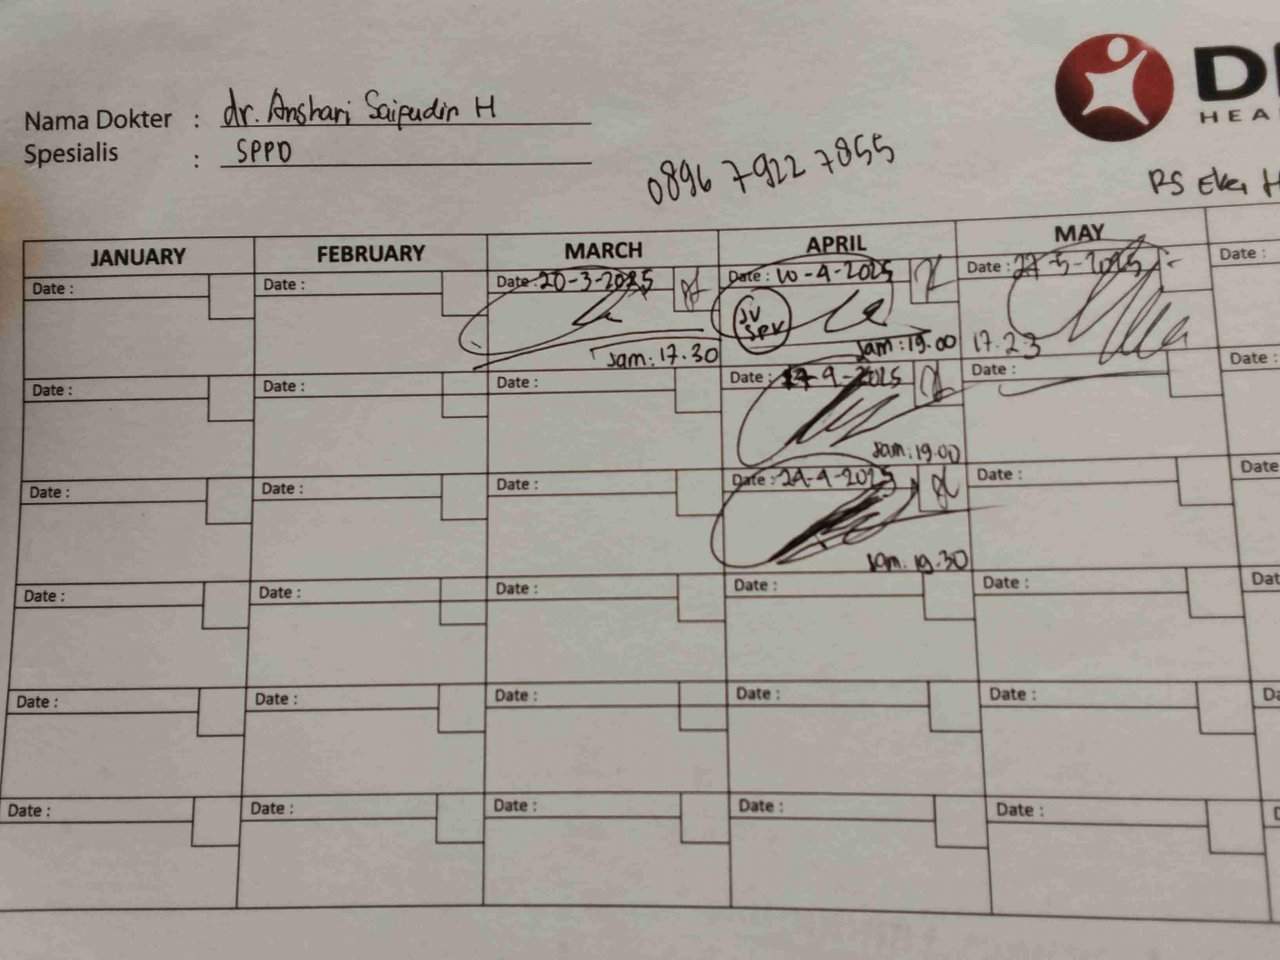 Nama Dokter : dr. Anshari Saifudin H
Spesialis : SPPD
0896 7922 7855
HEA
RS Eka H
JANUARY FEBRUARY MARCH APRIL MAY
Date : Date : Date : 20-3-2025 Date : 10-4-2025 Date : 27-5-2025 Date :
SV
SPV
Jam : 17.30 Jam : 19.00 17.23
Date : Date : Date : Date : 17-4-2025 Date : Date
Jam : 19.00
Date : Date : Date : Date : 24-4-2025 Date : Date
Jam : 19.30
Date : Date : Date : Date : Date : Dat
Date : Date : Date : Date : Date : Da
Date : Date : Date : Date : Date :